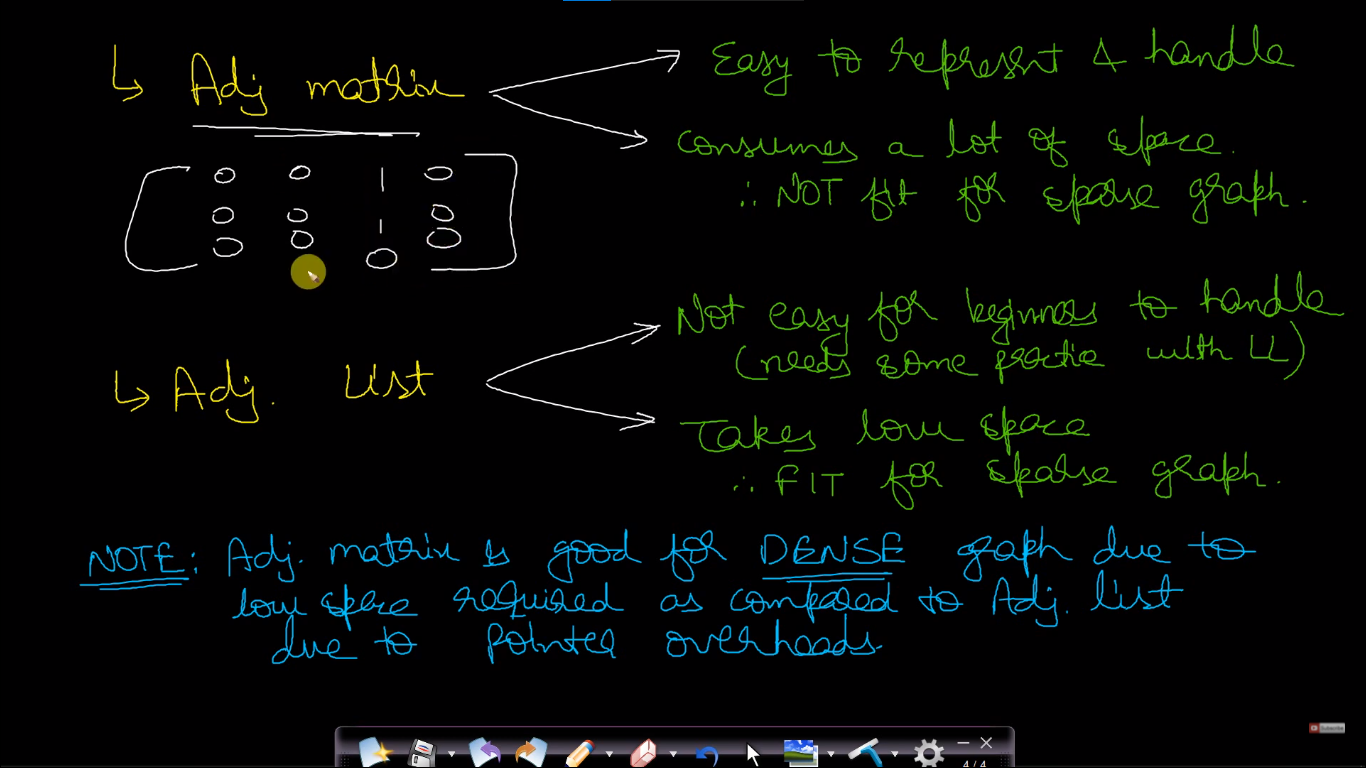 ↳ Adj matrix
Easy to represent & handle
consumes a lot of space.
∴ NOT fit for sparse graph.
0 0 1 0
0 0 1 0
0 0 0 0
↳ Adj. List
Not easy for beginners to handle
(needs some practice with LL)
Takes low space
∴ FIT for sparse graph.
NOTE: Adj. matrix is good for DENSE graph due to
low space required as compared to Adj. list
due to pointer overheads.
Subscribe
4/4